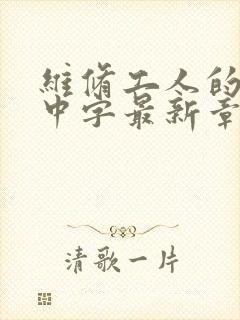 維脩工人的
中字最新章
清歌一片